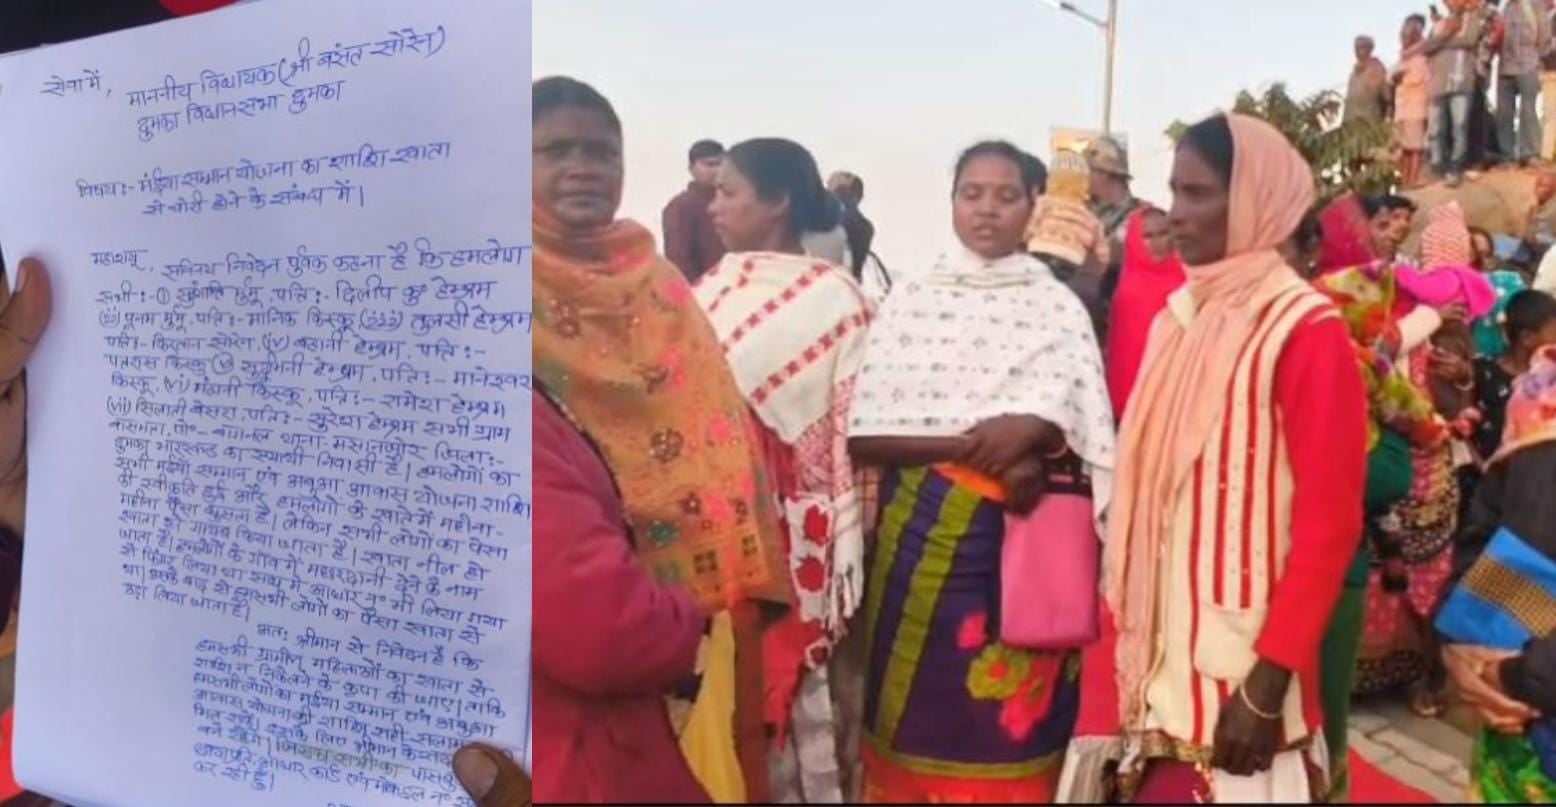 सेवा में,
माननीय विधायक (श्री बसंत सोरेन)
दुमका विधानसभा दुमका
विषय :- मंईया सम्मान योजना का राशि खाता
से चोरी होने के संबंध में।
महाशय,
सविनय निवेदन पूर्वक कहना है कि हमलोग
सभी :- ① मुर्मू, पति :- दिलीप कु० हेम्ब्रम
पूनम मुर्मू, पति :- मानिक किस्कू तुलसी हेम्ब्रम
पति :- सोरेन, (iv) हेम्ब्रम, पति :-
किस्कू हेम्ब्रम, पति :- मानेश्वर
किस्कू, (vi) किस्कू, पति :- रामेश हेम्ब्रम
(vii) बेसरा, पति :- सुरेश हेम्ब्रम सभी ग्राम
पो०- थाना- जिला :-
दुमका झारखण्ड का स्थायी निवासी है। हमलोगों का
सभी मंईया सम्मान एवं अबुआ आवास योजना राशि
की स्वीकृति हुई और हमलोगों के खाते में महीना-
महीना पैसा है। लेकिन सभी लोगों का पैसा
खाता से गायब किया जाता है। खाता नील हो
जाता है। हमलोगों के गाँव में मच्छरदानी देने के नाम
से लिया था साथ में आधार न० भी लिया गया
था। उसके बाद से हमसभी लोगों का पैसा खाता से
उड़ा लिया जाता है।
अतः श्रीमान से निवेदन है कि
हमसभी ग्रामीण महिलाओं का खाता से
राशि न के कृपा की जाए। ताकि
हमसभी लोगों का मंईया सम्मान एवं अबुआ
आवास योजना की राशि सही सलामत
मिल सके। इसके लिए श्रीमान के सदा
बने रहेंगे। जिसका सभी का
छायाप्रति, आधार कार्ड एवं मोबाइल न०
कर रही हूँ।